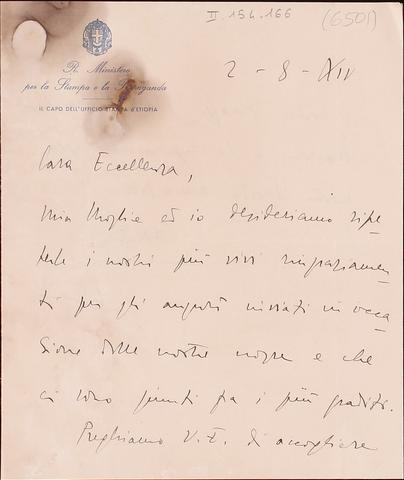 II. 154.166 (6501)
R. Ministero
per la Stampa e la Propaganda
IL CAPO DELL'UFFICIO STAMPA D'ETIOPIA
2 - 8 - XIV
Cara Eccellenza,
mia Moglie ed io desideriamo ripe
terle i nostri più vivi ringraziamen
ti per gli auguri inviati in occa
sione delle nostre nozze e che
ci sono giunti fra i più graditi.
Preghiamo V. E. di accogliere